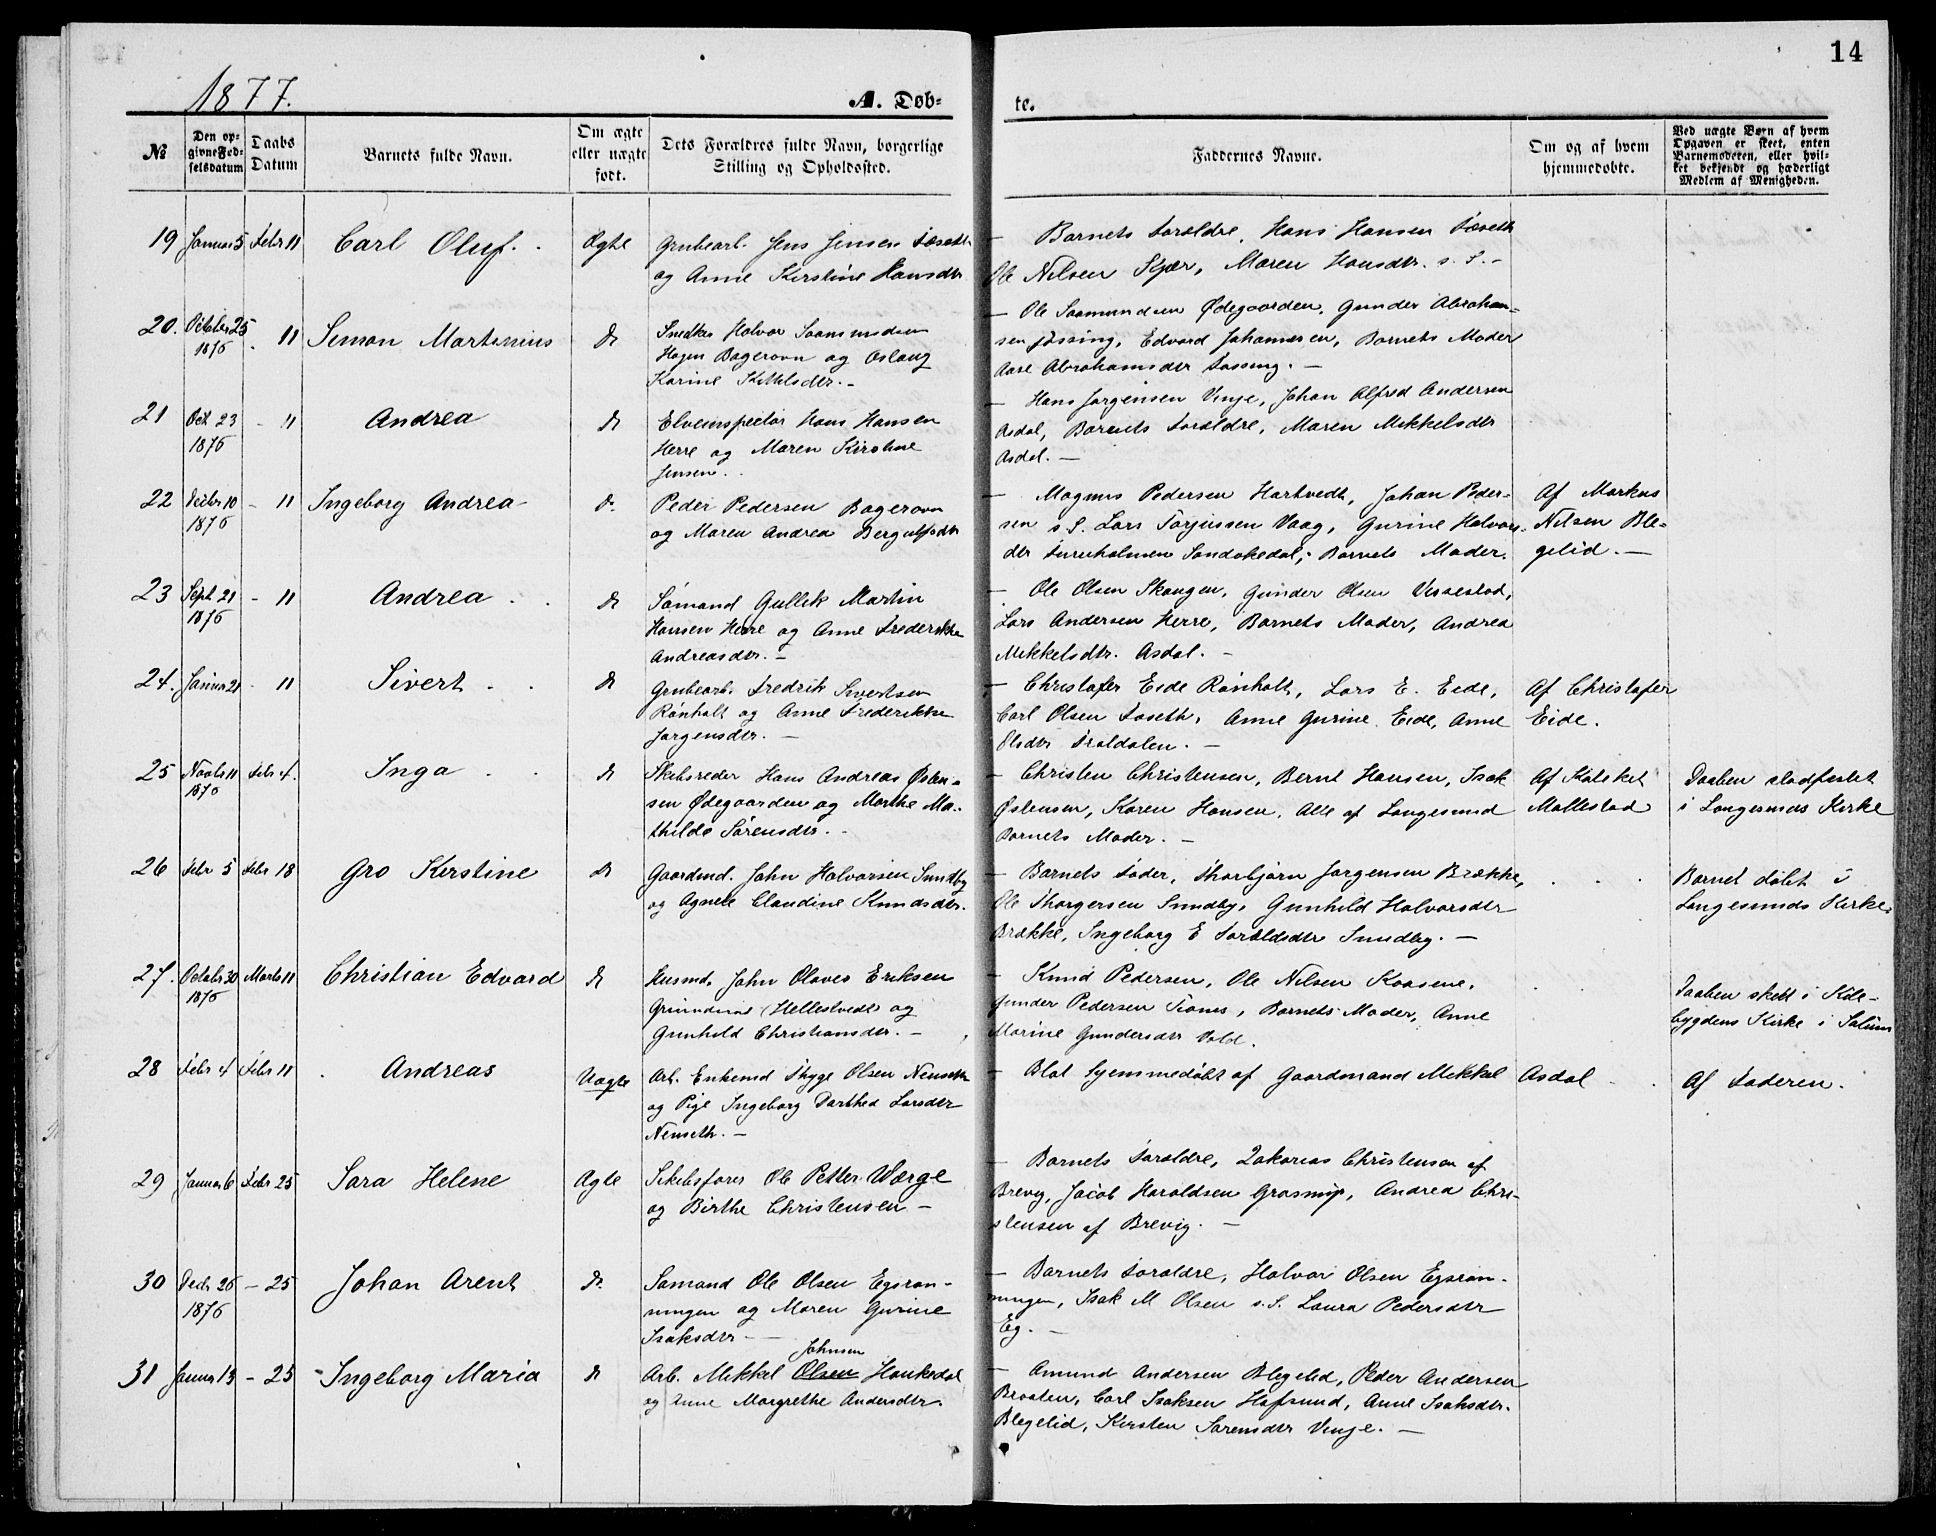 14
1877.
A. Døb-
te.
№
Den op-
givne Fød-
selsdatum
Daabs
Datum
Barnets fulde Navn.
Om ægte
eller uægte
født.
Dets Forældres fulde Navn, borgerlige
Stilling og Opholdssted.
Faddernes Navne.
Om og af hvem
hjemmedøbte.
Ved uægte Børn af hvem
Opgaven er skeet, enten
Barnemoderen, eller hvil-
ket bekjendt og hæderligt
Medlem af Menigheden.
19 Januar 5 Febr 11 Carl Oluf. Ægte Grubearb. Jens Jensen
og Anne Kirstine Hansdtr
— Barnets Forældre, Hans Hansen
Ole Nilsen Skjær, Maren Hansdtr. s. S. -
20. October 25 1876 - 11 Simon Martinius do Snedker Halvor Saamundsen
Hagen Bagerovn og Aslaug
Karine Kittelsdtr. -
— Ole Saamundsen Ødegaarden, Gunder Abraham-
sen Jøssing, Edvard Johannesen, Barnets Moder
Aase Abrahamsdtr -
21 Oct 23 1876 - 11 Andrea do Elveinspector Hans Hansen
Herre og Maren Kirstine
Jensen.
— Hans Jørgensen Vinje, Johan Alfred Andersen
Asdal, Barnets Forældre, Maren Mikkelsdtr
Asdal. —
22 Decbr 10 1876 - 11 Ingeborg Andrea do Peder Pedersen Bagerovn
og Maren Andrea Bergulfsdtr
— Magnus Pedersen Hartvedt, Johan Peder-
sen s. S. Lars Torjussen Vaag, Gurine Halvors-
dtr Fureholmen Sandøkedal, Barnets Moder.
Af Markus
Nilsen Ble-
gelid. —
23 Sept 21 1876 - 11 Andrea do Sømand Gullik Martin
Hansen Herre og Anne Frederikke
Andreasdtr. -
— Ole Olsen Skougen, Gunder Olsen Vissestad,
Lars Andersen Herre, Barnets Moder, Andrea
Mikkelsdtr. Asdal. -
24. Januar 21 - 11 Sivert do Grubearb. Fredrik Sivertsen
Rønholt og Anne Frederikke
Jørgensdtr. —
— Christofer Eide Rønholt, Lars E. Eide,
Carl Olsen Foseth, Anne Gurine Eide, Anne
Olsdtr Traldalen. -
Af Christofer
Eide.
25 Novbr 11 1876 Febr 4. Inga do Skibsreder Hans Andreas Østen-
sen Ødegaarden og Marthe Ma-
thilde Sørensdtr. -
— Christen Christensen, Bernt Hansen, Isak
Østensen, Karen Hansen, Alle af Langesund
Barnets Moder. -
Af Kateket
Møllestad
Daaben stadfæstet
i Langesunds Kirke
26 Febr 5 Febr 18 Gro Kirstine do Gaardmd. John Halvorsen Sundby
og Agnete Claudine Knudsdtr.
— Barnets Fader, Thorbjørn Jørgensen Brække,
Ole Thorgersen Sundby, Gunhild Halvorsdtr
Brække, Ingeborg E Toraldsdtr Sundby. -
Barnet døbt i
Langesunds Kirke.
27. October 30 1876 Marts 11 Christian Edvard do Husmd. John Olaves Eriksen
(Hellestvedt og
Gunhild Christiansdtr. -
— Knud Pedersen, Ole Nilsen Kaasene,
Gunder Pedersen Barnets Moder, Anne
Marine Gundersdtr Vold.
Daaben skett i Kile-
bygdens Kirke i Solum
28 Febr 4 Febr 11 Andreas Uægte Arb. Enkemd Thyge Olsen Nenseth
og Pige Ingeborg Dorthea Larsdtr
Nenseth. -
— Blot hjemmedøbt af Gaardmand Mikkel Asdal
Af Faderen.
29 Januar 6 Febr 25 Sara Helene Ægte Skibsfører Ole Petter Værge
og Birthe Christensen -
— Barnets Forældre, Zakarias Christensen af
Brevig, Jacob Haraldsen Andrea Chri-
stensen af Brevig. -
30 Decbr 26 1876 - 25 Johan Arent do Sømand Ole Olsen Egsrøn-
ningen og Maren Gurine
Isaksdtr -
— Barnets Forældre, Halvor Olsen Egsrøn-
ningen, Isak M Olsen s. S. Laura Pedersdtr
Eg. -
31 Januar 13 - 25 Ingeborg Maria do Johnsen
Arb. Mikkel Olsen Haukedal
og Anne Margrethe Andersdtr.
— Amund Andersen Blegelid, Peder Andersen
Braaten, Carl Isaksen Hafsund, Anne Isaksdtr.
Blegelid, Kirsten Sørensdtr Vinje. —